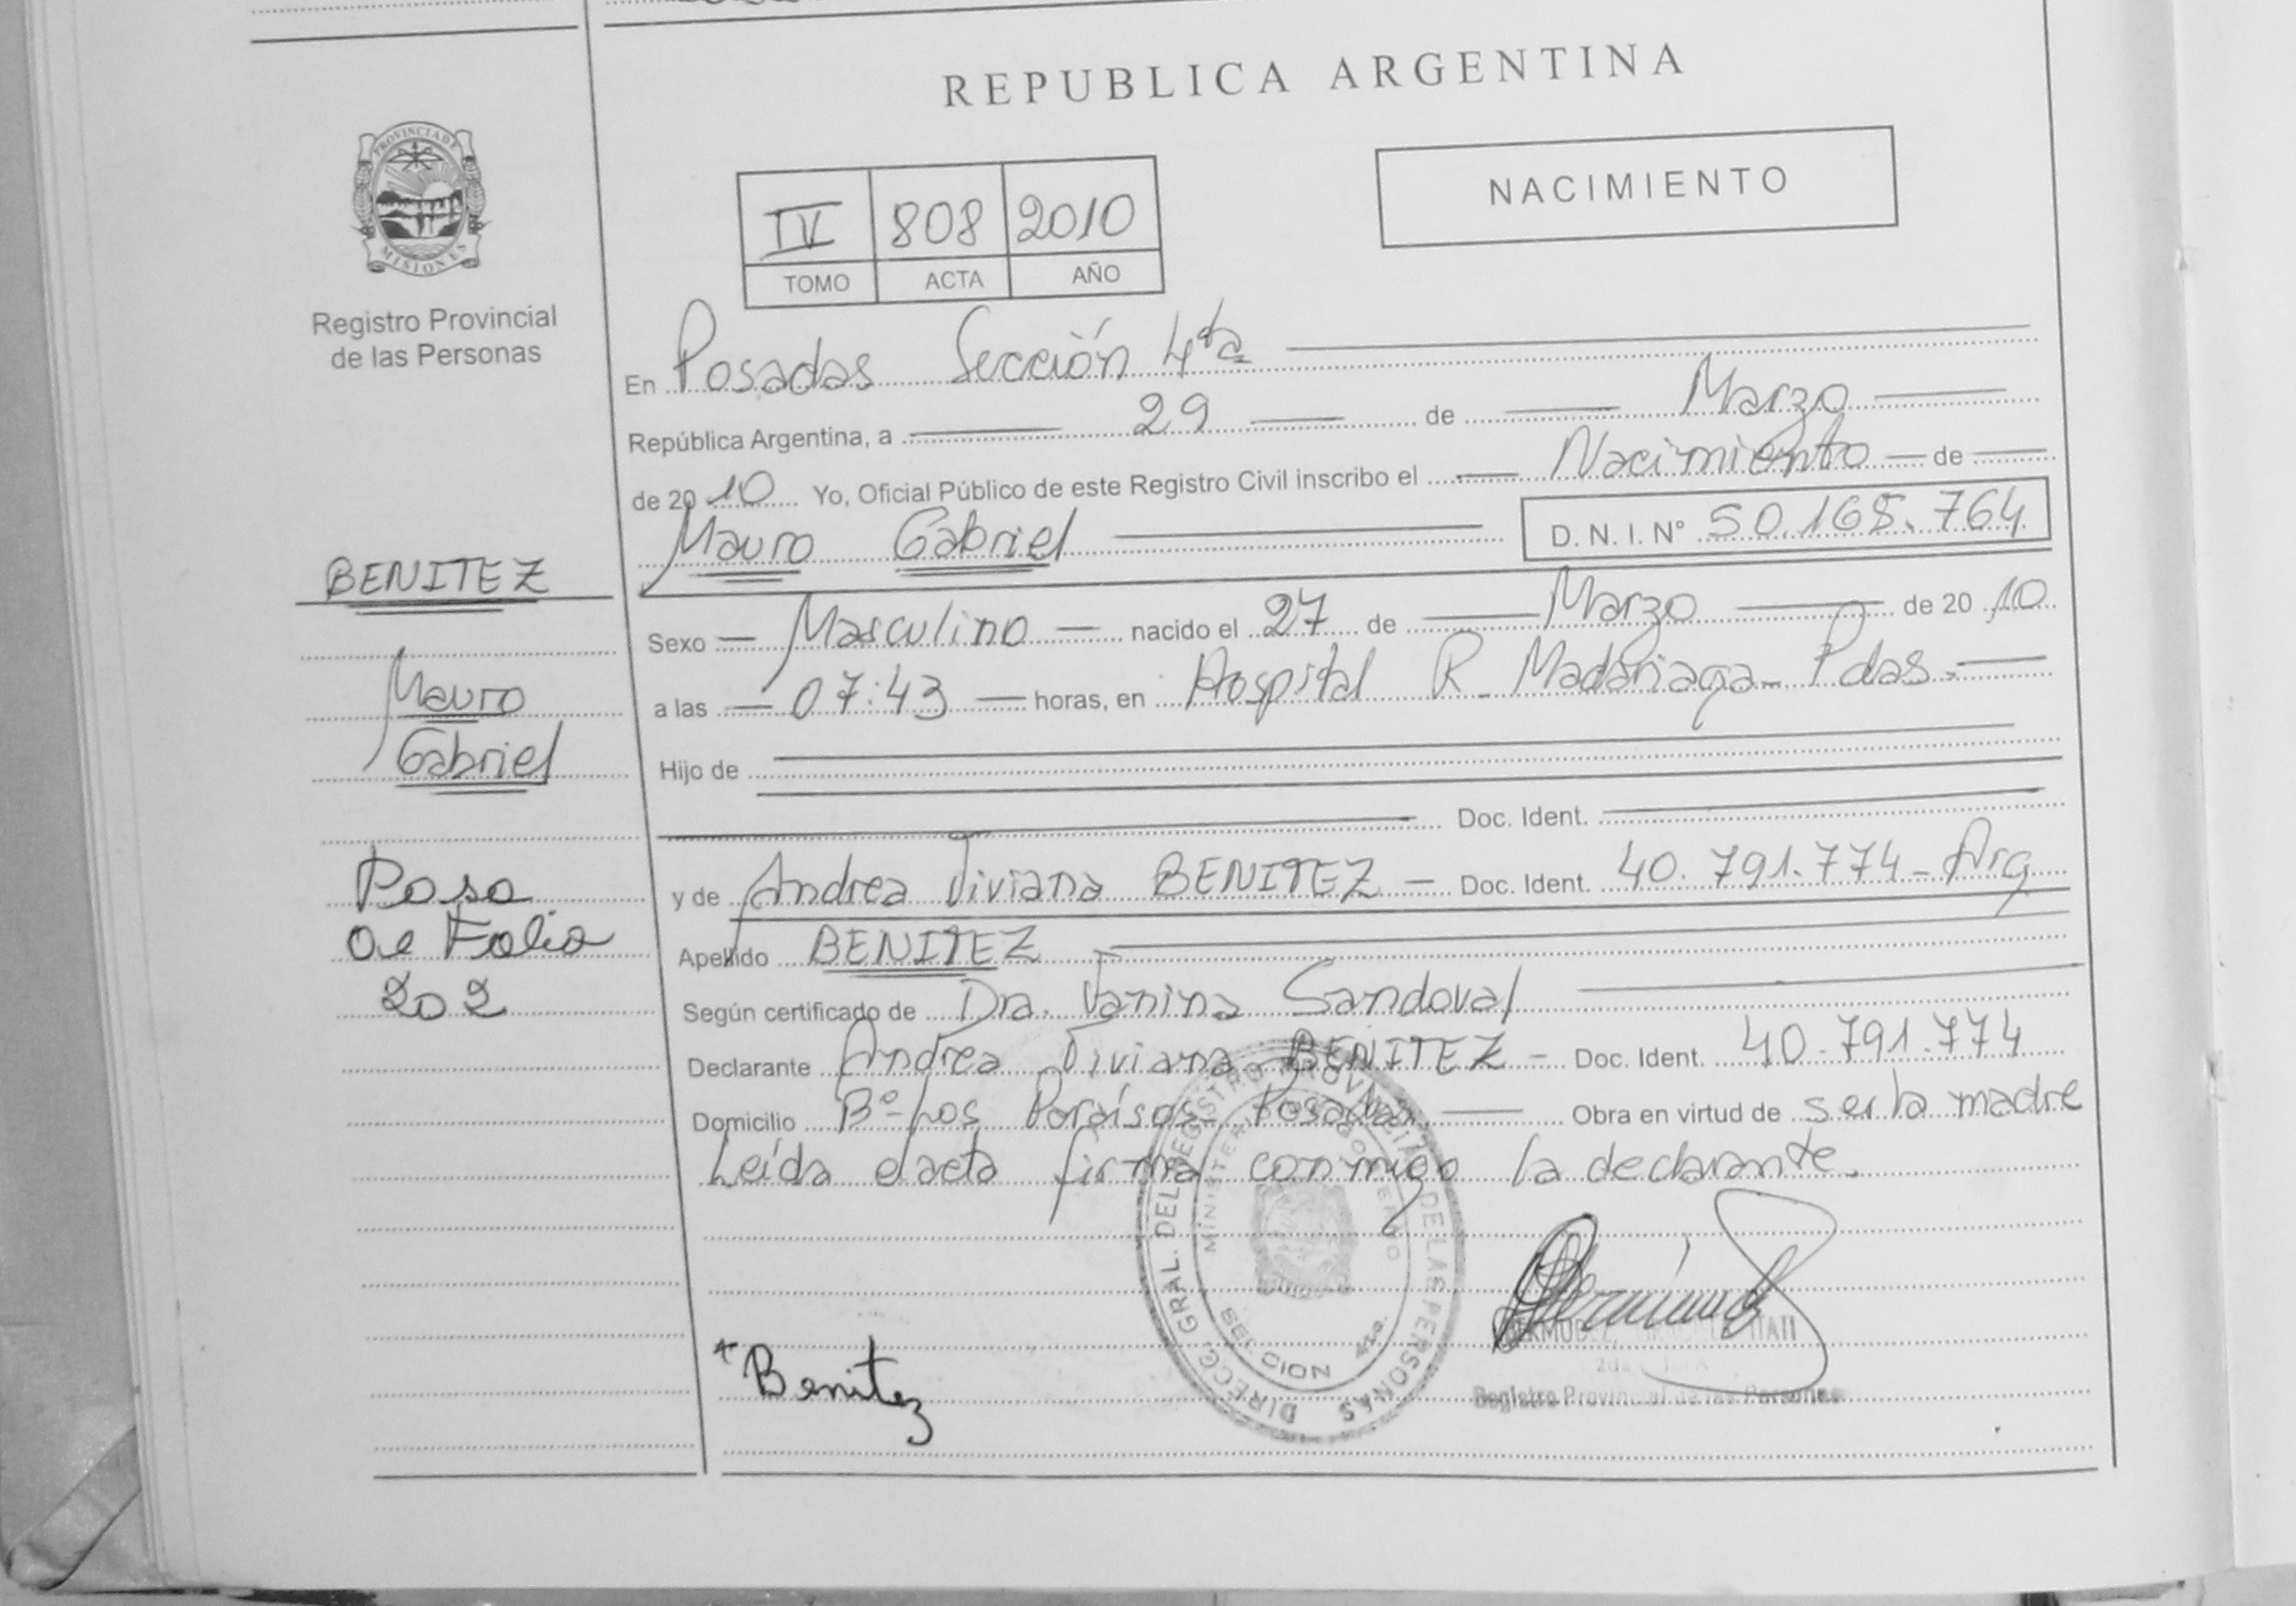 REPUBLICA ARGENTINA
PROVINCIA DE
MISIONES
Registro Provincial
de las Personas
NACIMIENTO
IV 808 2010
TOMO ACTA AÑO
En Posadas Sección 4ta
República Argentina, a 29 de Marzo
de 2010 Yo, Oficial Público de este Registro Civil inscribo el Nacimiento de
Mauro Gabriel D. N. I. N° 50.165.764
BENITEZ
Mauro
Gabriel
Pasa
al Folio
202
Sexo Masculino nacido el 27 de Marzo de 2010
a las 07:43 horas, en Hospital R. Madariaga - Pdas.
Hijo de
Doc. Ident.
y de Andrea Viviana BENITEZ - Doc. Ident. 40.791.774 - Arg
Apellido BENITEZ
Según certificado de Dra. Vanina Sandoval
Declarante Andrea Viviana BENITEZ - Doc. Ident. 40.791.774
Domicilio B° Los Paraísos, Posadas. Obra en virtud de ser la madre
Leída el acta firma conmigo la declarante.
DIRECC. GRAL. DEL REGISTRO PROVINCIAL DE LAS PERSONAS
Benitez
Registro Provincial de las Personas